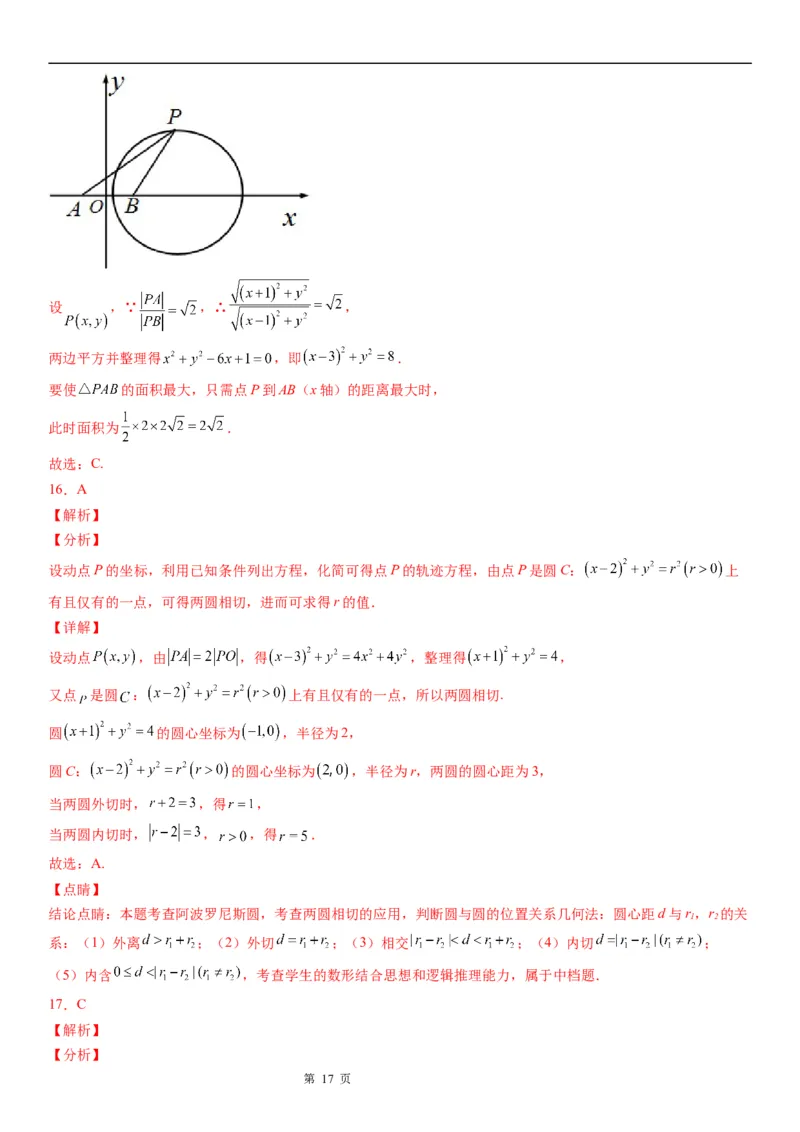 y
P
A O B
x
设P(x,y),∵|PA|/|PB|=√2,∴√((x+1)²+y²)/√((x-1)²+y²)=√2,
两边平方并整理得x²+y²-6x+1=0,即(x-3)²+y²=8.
要使△PAB的面积最大,只需点P到AB(x轴)的距离最大时,
此时面积为1/2×2×2√2=2√2.
故选:C.
16.A
【解析】
【分析】
设动点P的坐标,利用已知条件列出方程,化简可得点P的轨迹方程,由点P是圆C:(x-2)²+y²=r²(r>0)上
有且仅有的一点,可得两圆相切,进而可求得r的值.
【详解】
设动点P(x,y),由|PA|=2|PO|,得(x-3)²+y²=4x²+4y²,整理得(x+1)²+y²=4,
又点P是圆C:(x-2)²+y²=r²(r>0)上有且仅有的一点,所以两圆相切.
圆(x+1)²+y²=4的圆心坐标为(-1,0),半径为2,
圆C:(x-2)²+y²=r²(r>0)的圆心坐标为(2,0),半径为r,两圆的圆心距为3,
当两圆外切时,r+2=3,得r=1,
当两圆内切时,|r-2|=3,r>0,得r=5.
故选:A.
【点睛】
结论点睛:本题考查阿波罗尼斯圆,考查两圆相切的应用,判断圆与圆的位置关系几何法:圆心距d与r₁,r₂的关
系:(1)外离d>r₁+r₂;(2)外切d=r₁+r₂;(3)相交|r₁-r₂|<d<r₁+r₂;(4)内切d=|r₁-r₂|(r₁≠r₂);
(5)内含0≤d<|r₁-r₂|(r₁≠r₂),考查学生的数形结合思想和逻辑推理能力,属于中档题.
17.C
【解析】
【分析】
第 17 页